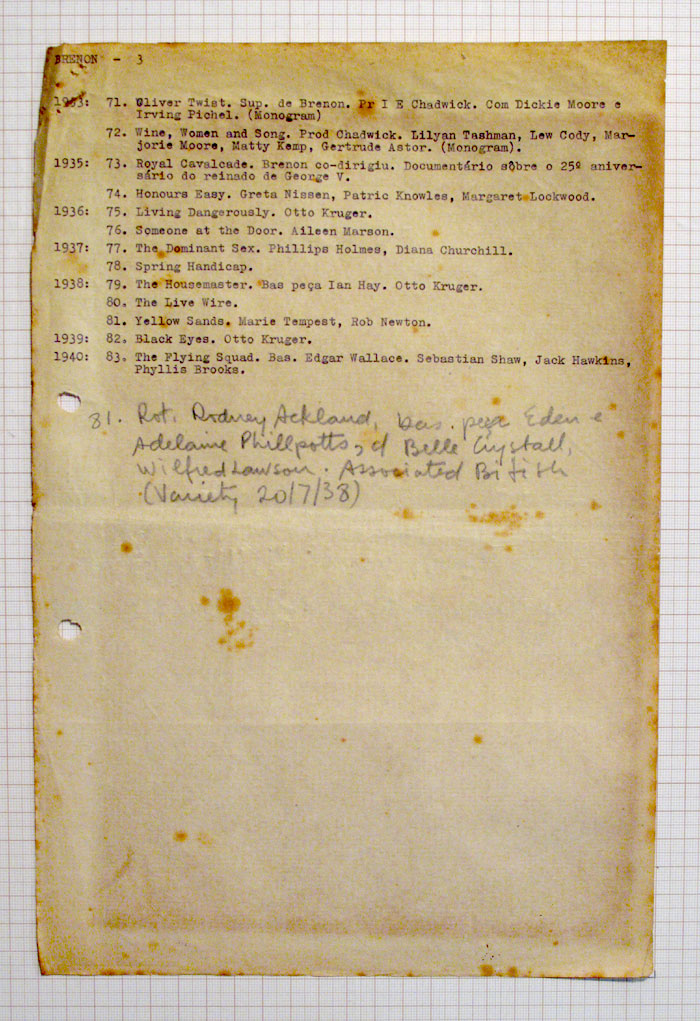 BRENON - 3
1933: 71. Oliver Twist. Sup. de Brenon. Pr I E Chadwick. Com Dickie Moore e
Irving Pichel. (Monogram)
72. Wine, Women and Song. Prod Chadwick. Lilyan Tashman, Lew Cody, Mar-
jorie Moore, Matty Kemp, Gertrude Astor. (Monogram).
1935: 73. Royal Cavalcade. Brenon co-dirigiu. Documentário sôbre o 25º aniver-
sário do reinado de George V.
74. Honours Easy. Greta Nissen, Patric Knowles, Margaret Lockwood.
1936: 75. Living Dangerously. Otto Kruger.
76. Someone at the Door. Aileen Marson.
1937: 77. The Dominant Sex. Phillips Holmes, Diana Churchill.
78. Spring Handicap.
1938: 79. The Housemaster. Bas peça Ian Hay. Otto Kruger.
80. The Live Wire.
81. Yellow Sands. Marie Tempest, Rob Newton.
1939: 82. Black Eyes. Otto Kruger.
1940: 83. The Flying Squad. Bas. Edgar Wallace. Sebastian Shaw, Jack Hawkins,
Phyllis Brooks.
81. Rot. Rodney Ackland, bas. peça Eden e
Adelaine Phillpotts, c/ Belle Crystall,
Wilfred Lawson. Associated British
(Variety 20/7/38)